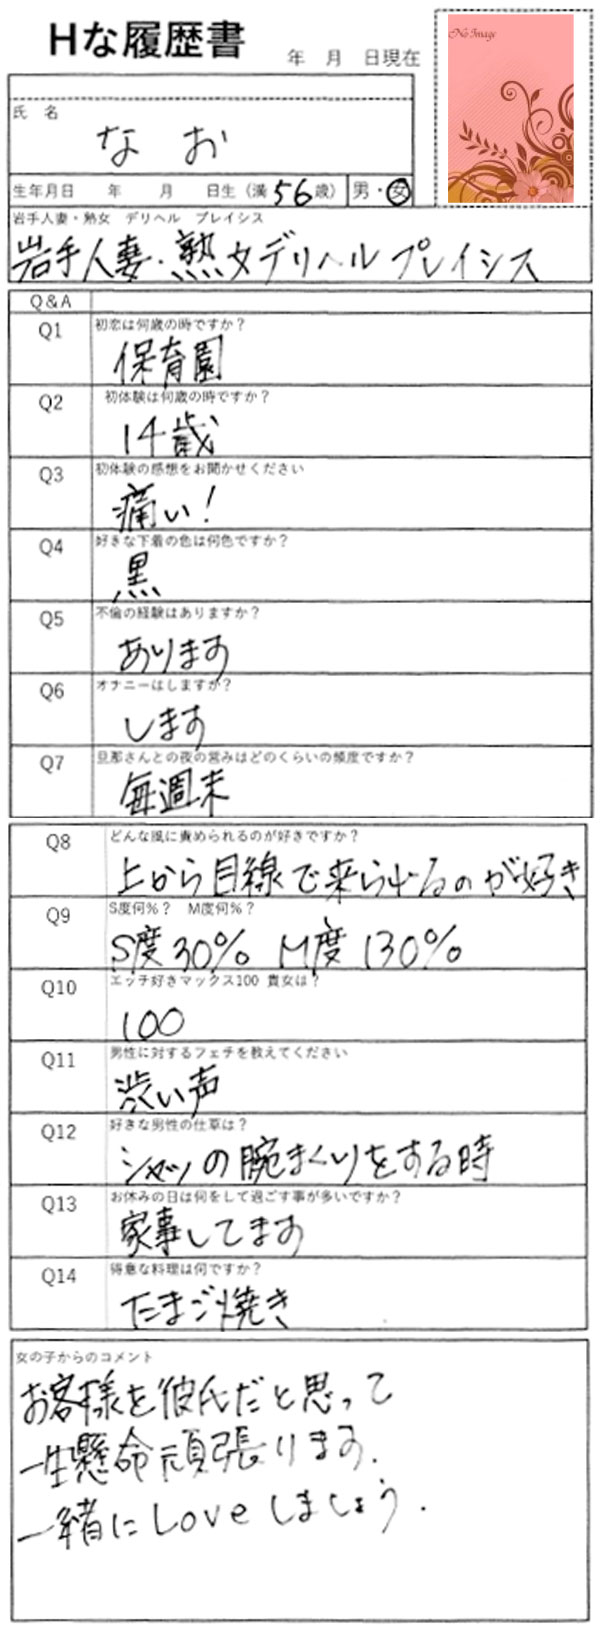 Hな履歴書
年 月 日現在
No Image
氏 名
なお
生年月日 年 月 日生 (満 56 歳) 男・女
岩手人妻・熟女 デリヘル プレイシス
岩手人妻・熟女デリヘル プレイシス
Q&A
Q1 初恋は何歳の時ですか？
保育園
Q4 好きな下着の色は何色ですか？
黒
Q5 不倫の経験はありますか？
あります
Q6 オナニーはしますか？
します
Q7 旦那さんとの夜の営みはどのくらいの頻度ですか？
毎週末
Q8 どんな風に責められるのが好きですか？
上から目線で来られるのが好き
Q9 S度何%？ M度何%？
S度30% M度130%
Q10 エッチ好きマックス100 貴女は？
100
Q11 男性に対するフェチを教えてください
渋い声
Q12 好きな男性の仕草は？
シャツの腕まくりをする時
Q13 お休みの日は何をして過ごす事が多いですか？
家事してます
Q14 得意な料理は何ですか？
たまご焼き
女の子からのコメント
お客様を彼氏だと思って
一生懸命頑張ります.
一緒にLoveしましょう.